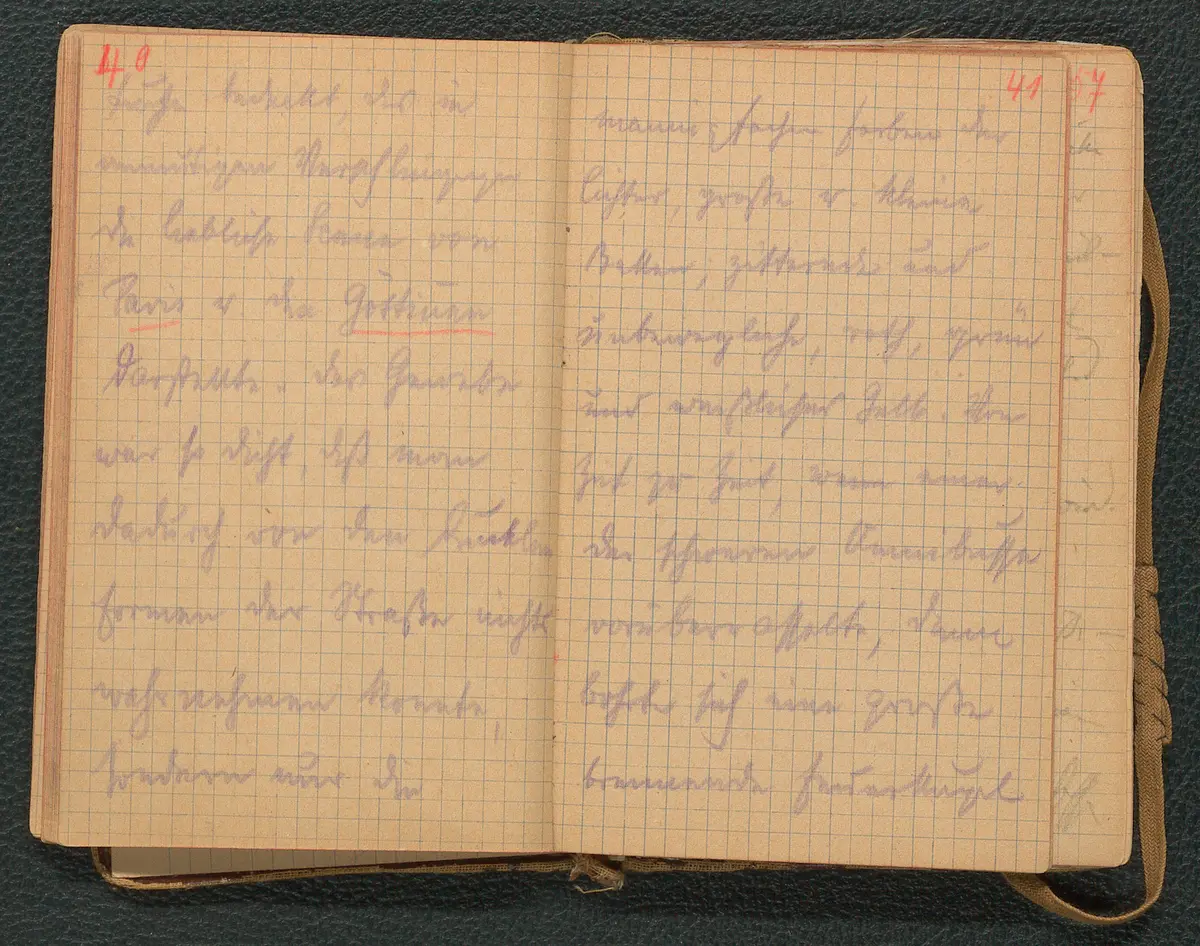 40
Tuche bedeckt, das in
anmutigen Verschlingungen
die liebliche Scene von
Paris u. den Göttinen
darstellte. Das Gewebe
war so dicht, daß man
dadurch von den dunklen
Formen der Straße nichts
wahrnehmen konnte,
sondern nur die
41
mannigfachen Farben der
Lichter, große u. kleine
Ballen, zitternde und
unbewegliche, roth, grün
und weißliches Gelb. Von
Zeit zu Zeit, wenn einer
der schweren Omnibusse
vorüberrasselte, dann
bohrte sich eine große
brennende Feuerkugel
57